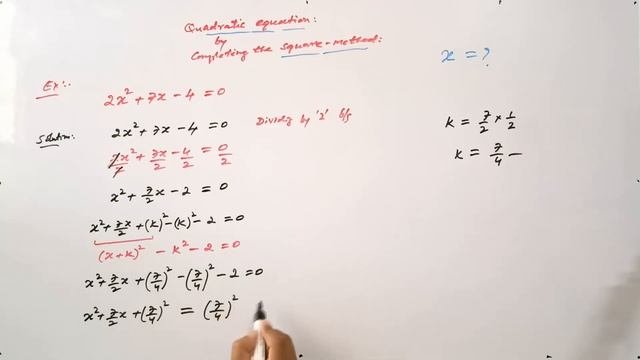 Quadratic equation:
by
Completing the square-method:
x = ?
Ex:-
2x² + 7x - 4 = 0
Solution:
2x² + 7x - 4 = 0 Dividing by '2' b/s
2x²/2 + 7x/2 - 4/2 = 0/2
x² + 7/2 x - 2 = 0
x² + 7x/2 + (k)² - (k)² - 2 = 0
(x+k)² - k² - 2 = 0
x² + 7/2 x + (7/4)² - (7/4)² - 2 = 0
x² + 7/2 x + (7/4)² = (7/4)²
k = 7/2 × 1/2
k = 7/4 -